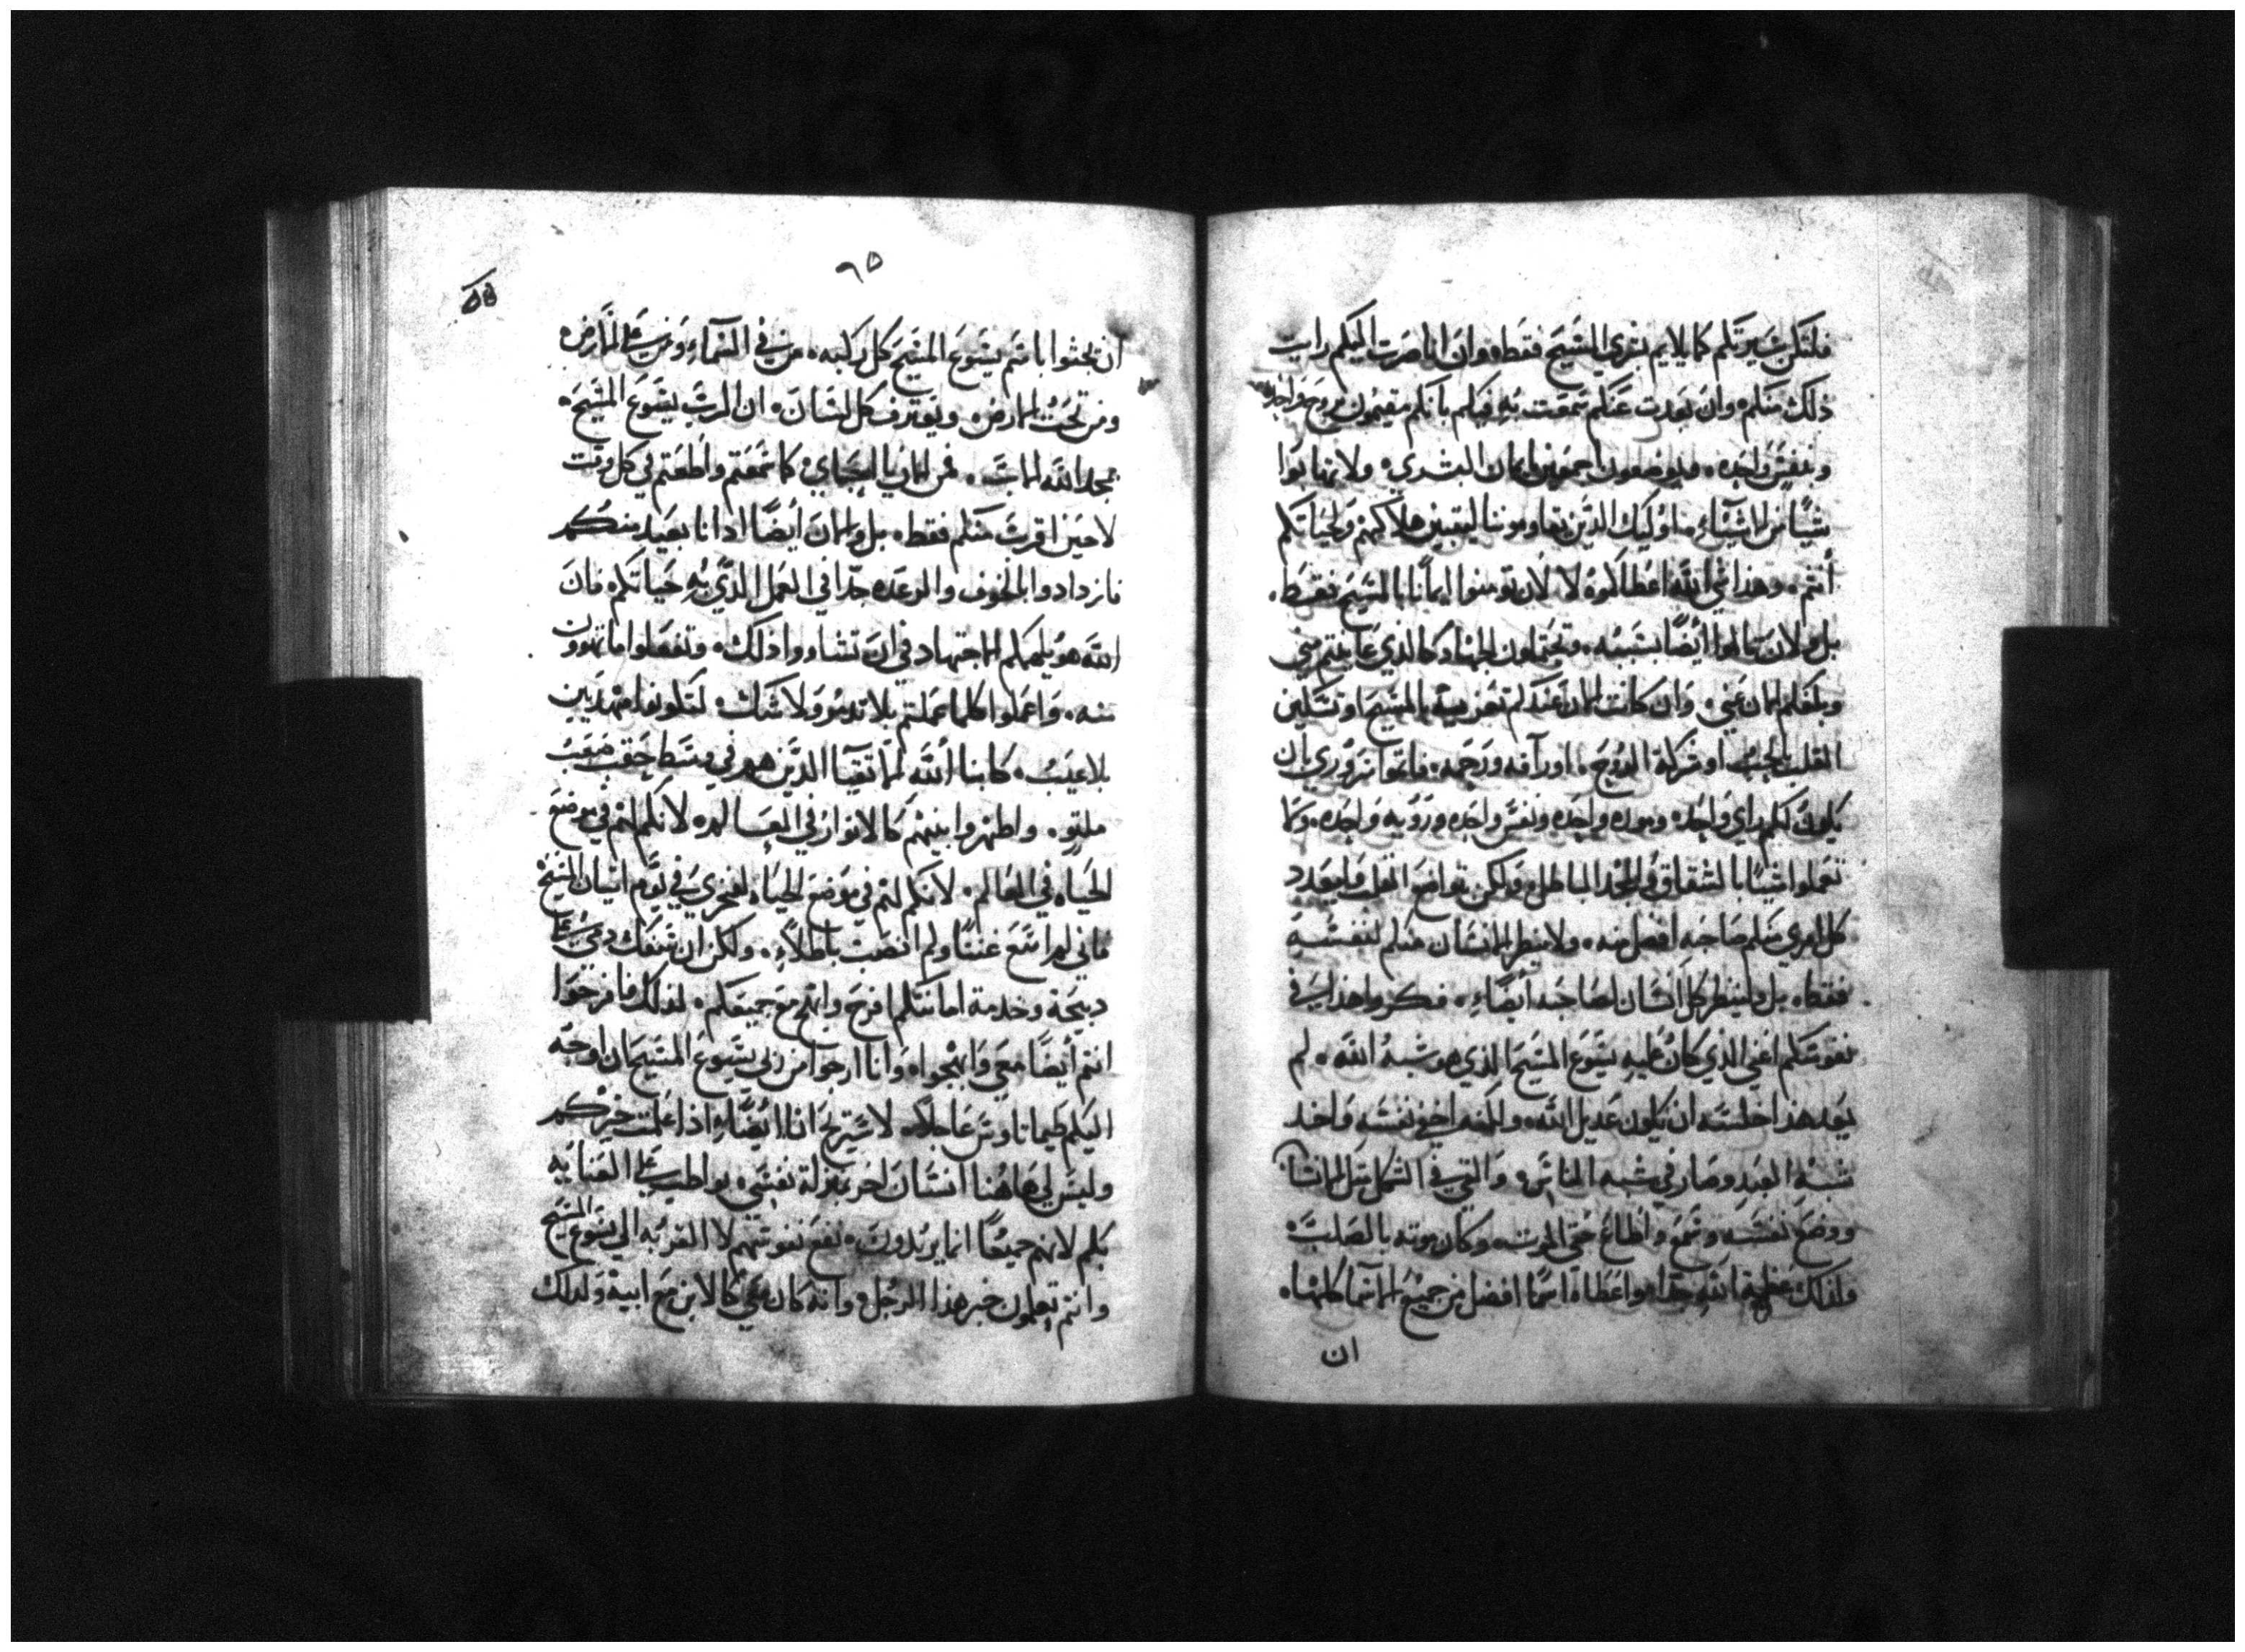 فلتكن سيرتكم كما يلايم بشري المسيح فقط، وان انا صرت اليكم رايت
ذلك منكم، وان بعدت عنكم سمعت به فيكم بانكم مقيمون بروح واحده
وبنفس واحده، اجمعين بايمان البشري، ولا تهابوا
شيًا من الاشياء من اوليك الذين يقاوموننا ليتبين هلاكهم ولحياتكم
أنتم، وهذا شي الله اعطاكموه لا لان تومنوا ايمانًا بالمسيح فقط،
بل ولان تالموا أيضًا بسببه، وتحتملون الجهاد كالذي عاينتم مني
وبلغكم الان عني، وان كانت الان عندكم تعزيه بالمسيح او تسكين
القلب بالحب او شركة الروح، او رآفه ورحمه، فاتموا سروري بان
يكون لكم راي واحد، وموده واحده ونفس واحده ورويه واحده، ولا
تعملوا شيًا بالشقاق والمجد الباطل، ولكن بتواضع القلب وليعدد
كل امري منكم صاحبه افضل منه، ولا ينظر الانسان منكم لنفسه
فقط، بل ولينظر كل انسان لصاحبه أيضًا، فكروا هذا في
نفوسكم اعني الذي كان عليه يسوع المسيح الذي هو شبه الله، لم
يعد هذا خلسه ان يكون عديل الله، ولكنه اخفي نفسه واخد
شبه العبد وصار في شبه الناس، والفي في الشكل مثل الانسان
ووضع نفسه وسمع واطاع حتي الموت، وكان موته بالصلب،
ولذلك عظمه الله جدا، واعطاه اسمًا افضل من جميع الاسما كلها،
ان
٦٥
ان تجثوا باسم يسوع المسيح كل ركبه، من في السماء ومن علي الارض،
ومن تحت الارض، ويعترف كل لسان، ان الرب يسوع المسيح،
بمجد الله الاب، فمن الان يا احباي، كما سمعتم واطعتم في كل وقت
لا حين اقرب منكم فقط، بل والان أيضًا اذ انا بعيد منكم
فازدادوا بالخوف والرعده جدا في العمل الذي به حياتكم، فان
الله هو يلهمكم الاجتهاد في ان تشاووا ذلك، وتفعلوا ما تهوون
منه، واعملوا كلما عملتم بلا تدمر ولا شك، لتكونوا مهذبين
بلا عيب، كابنا الله الاتقيا الذين هم في وسط حقب صعب
ملتو، واظهروا بينهم كالانوار في العالم، لانكم لهم في موضع
الحياه في العالم، لانكم لهم في موضع الحياه لفخري في يوم اتيان المسيح
فاني لم اسع عنتًا ولم انصب باطلاً، ولكن ان سفك دمي علي
دبيحة وخدمة امانتكم افرح وابتهج مع جميعكم، لذلك فافرحوا
انتم أيضًا معي وابتهجوا، وانا ارجوا من ربي يسوع المسيح ان اوجه
اليكم طيماتاوس عاجلاً، لاستريح انا ايضًا، اذا علمت خبركم
وليس لي هاهنا انسان اخر بمنزلة نفسي، يواظب علي العنايه
بكم لانهم جميعًا انما يريدون، نفع نفوسهم لا القربه الي يسوع المسيح
وانتم تعلمون خبر هذا الرجل، وانه كان معي كالابن مع ابيه ولذلك